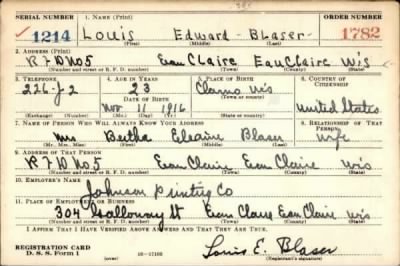 SERIAL NUMBER 1. NAME (Print) ORDER NUMBER
1214 Louis Edward Blaser 1782
(First) (Middle) (Last)
2. ADDRESS (Print)
R F D No 5 Eau Claire Eau Claire Wis
(Number and street or R. F. D. number) (Town) (County) (State)
3. TELEPHONE 4. AGE IN YEARS 5. PLACE OF BIRTH 6. COUNTRY OF CITIZENSHIP
226-J-2 23 Wis
DATE OF BIRTH (Town or county)
Nov 11 1916 United States
(Exchange) (Number) (Mo.) (Day) (Yr.) (State or country)
7. NAME OF PERSON WHO WILL ALWAYS KNOW YOUR ADDRESS 8. RELATIONSHIP OF THAT PERSON
Mrs Bertha Elaine Blaser wife
(Mr., Mrs., Miss) (First) (Middle) (Last)
9. ADDRESS OF THAT PERSON
R F D No 5 Eau Claire Eau Claire Wis
(Number and street or R. F. D. number) (Town) (County) (State)
10. EMPLOYER'S NAME
Johnson Printing Co
11. PLACE OF EMPLOYMENT OR BUSINESS
304 Galloway St Eau Claire Eau Claire Wis
(Number and street or R. F. D. number) (Town) (County) (State)
I AFFIRM THAT I HAVE VERIFIED ABOVE ANSWERS AND THAT THEY ARE TRUE.
REGISTRATION CARD
D. S. S. Form 1 (over) Louis E. Blaser
(Registrant's signature)